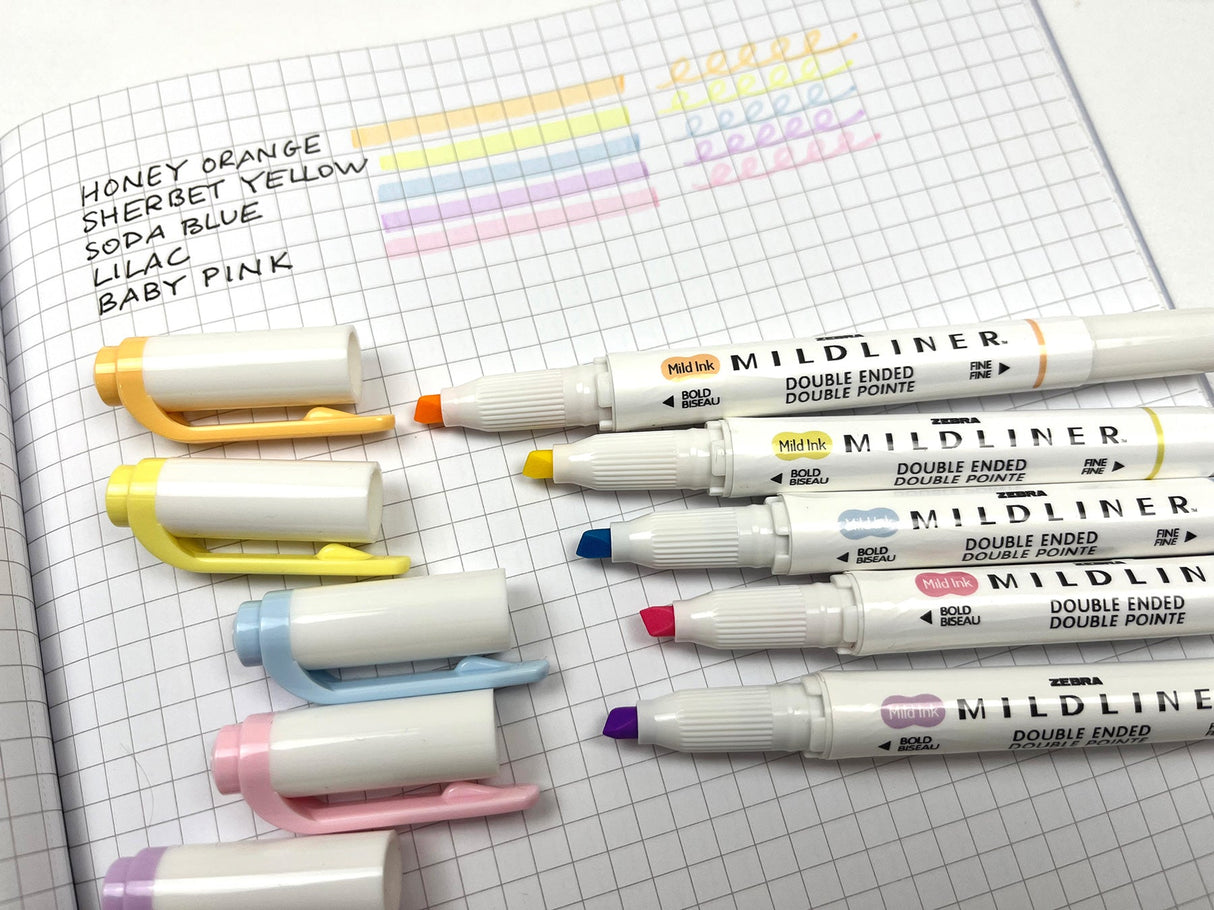 HONEY ORANGE
SHERBET YELLOW
SODA BLUE
LILAC
BABY PINK
ZEBRA
Mild Ink MILDLINER™
DOUBLE ENDED
DOUBLE POINTE
◄ BOLD
BISEAU
FINE ►
FINE
ZEBRA
Mild Ink MILDLINER™
DOUBLE ENDED
DOUBLE POINTE
◄ BOLD
BISEAU
FINE ►
FINE
ZEBRA
Mild Ink MILDLINER™
DOUBLE ENDED
DOUBLE POINTE
◄ BOLD
BISEAU
FINE ►
FINE
ZEBRA
Mild Ink MILDLIN
DOUBLE ENDED
DOUBLE POINTE
◄ BOLD
BISEAU
ZEBRA
Mild Ink MILDLINER
DOUBLE ENDED
DOUBLE POINTE
◄ BOLD
BISEAU